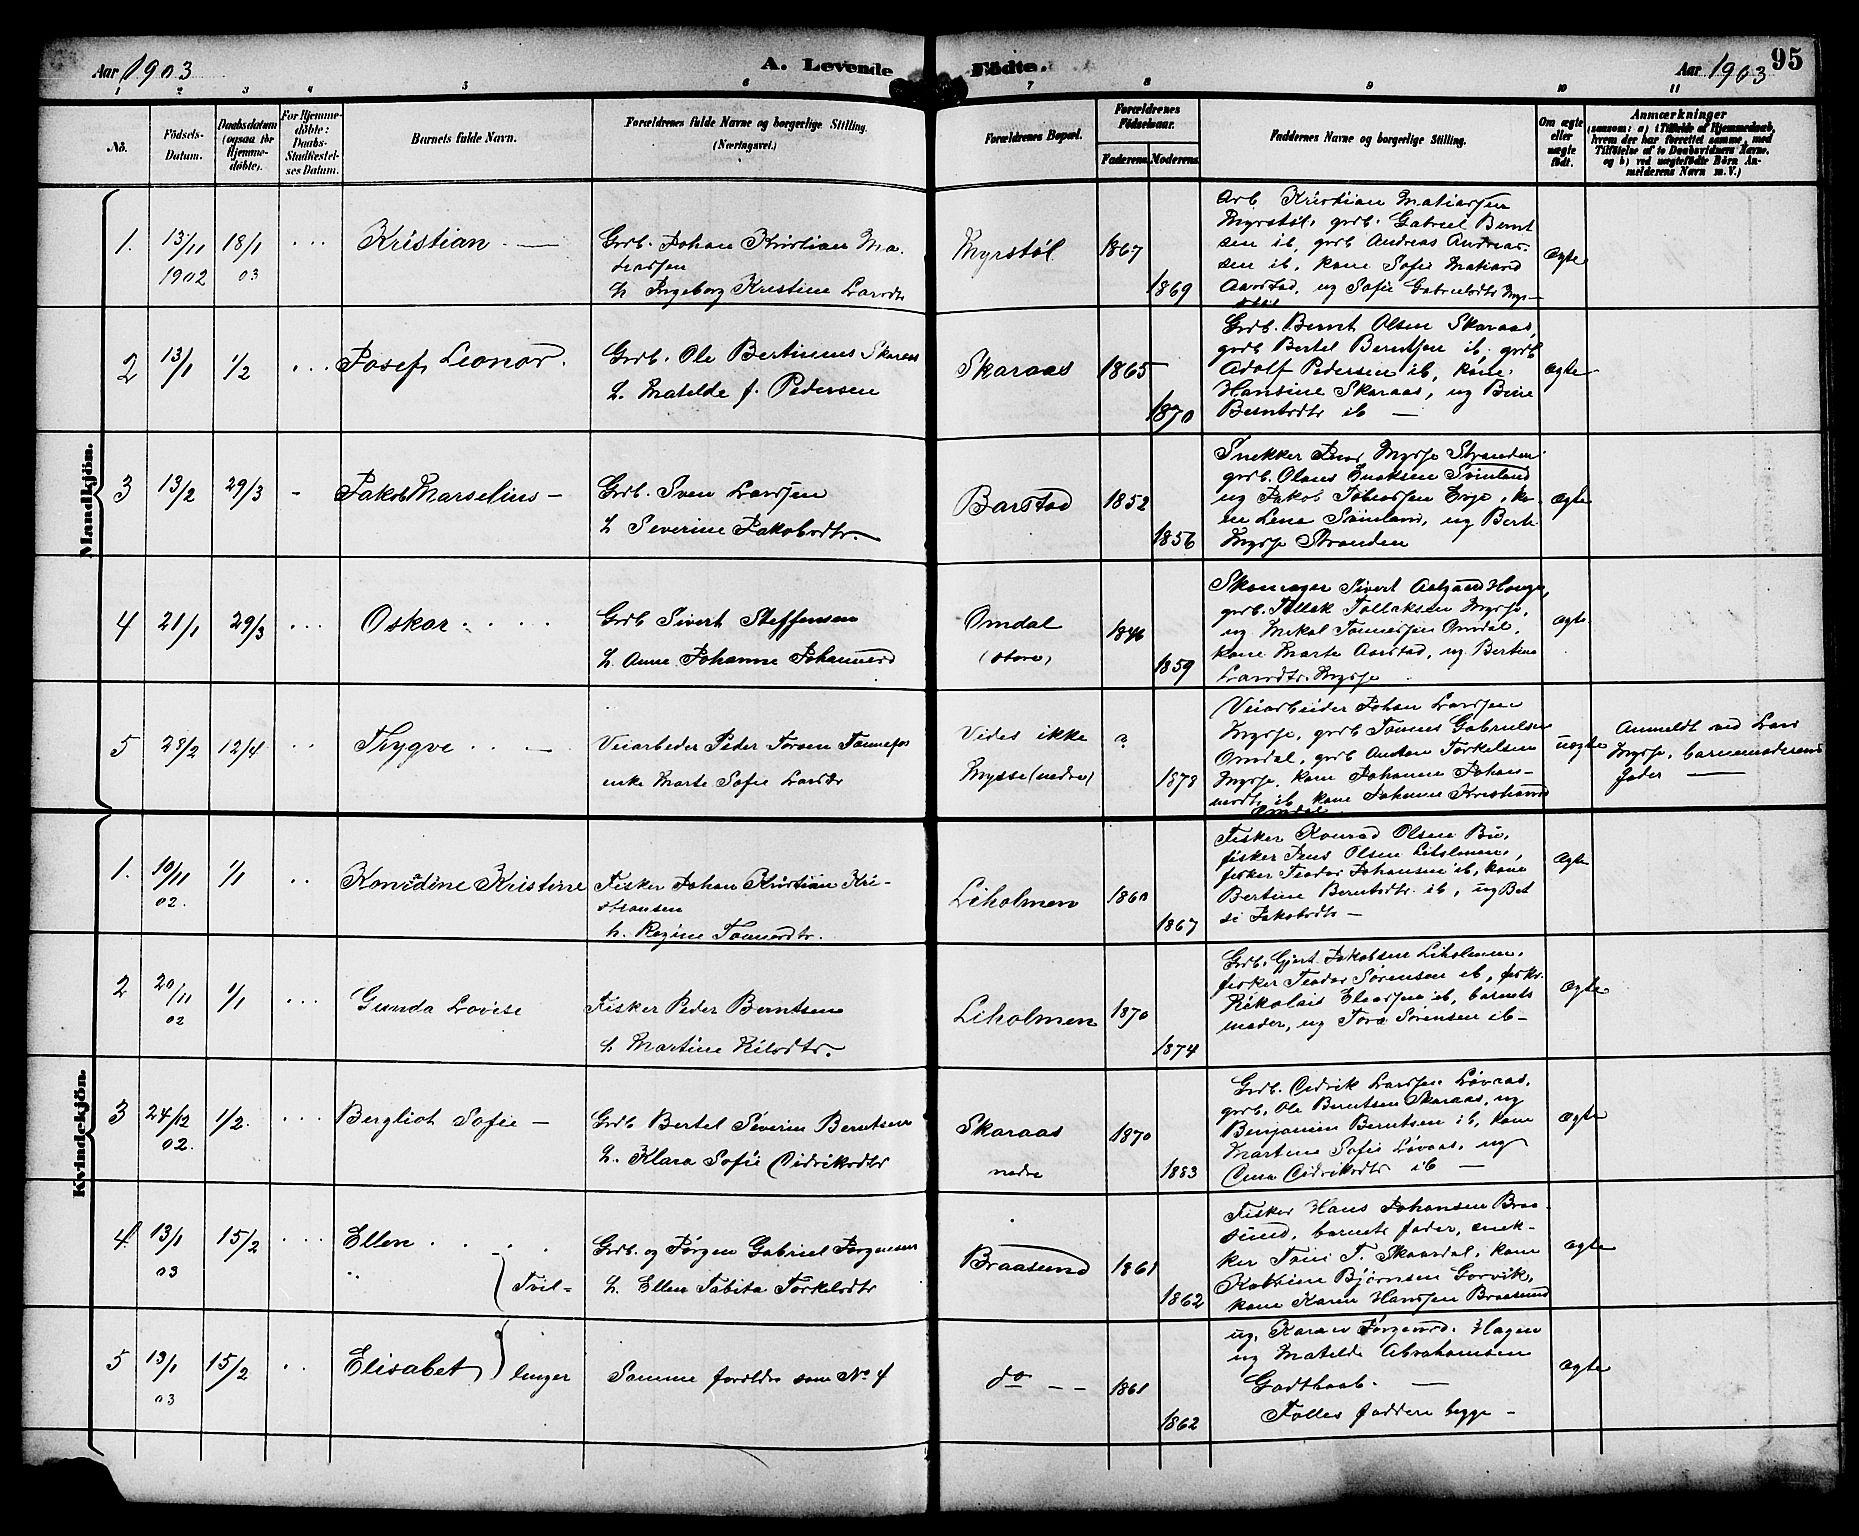 Aar 1903
A. Levende Födte.
Aar 1903
95
1 2 3 4 5 6 7 8 9 10 11
No.
Födsels-
Datum.
Daabsdatum
(ogsaa for
Hjemme-
döbte).
For Hjemme-
döbte:
Daabs-
Stadfæstel-
ses Datum.
Barnets fulde Navn.
Forældrenes fulde Navne og borgerlige Stilling.
(Næringsvei.)
Forældrenes Bopæl.
Forældrenes
Födselsaar.
Faderens
Moderens
Faddernes Navne og borgerlige Stilling.
Om ægte
eller
uægte
födt.
Anmærkninger
(saasom: a) i Tilfælde af Hjemmedaab,
hvem der har forrettet samme, med
Tilföielse af to Daabsvidners Navne,
og b) ved uægtefödte Börn An-
melderens Navn m. V.)
Mandkjön.
1. 13/11 1902
18/1 03
Kristian
Grdb. Johan Kristian Ma-
tiassen
h. Ingeborg Kristine Larsdtr
Myrstöl
1867
1869
Arb. Kristian Matiassen
Myrstöl, grdb. Gabriel Bernt
sen ib, grdb Andreas Andreas-
sen ib, kone Sofie Matiasd
Aarstad, ug Sofie Gabrielsdtr Myr-
stöl
Ægte
2 13/1 1/2
Josef Leonar.
Grdb. Ole Bertinius Skaraas
h. Matelde f. Pedersen
Skaraas
1865
1870
Grdb. Bernt Olsen Skaraas,
grdb Bertel Berntsen ib, grdb
Adolf Pedersen ib, kone
Hansine Skaraas, ug Bine
Berntsdtr ib
ægte
3 13/2 29/3
Jakob Marselius
Grdb. Sven Larsen
h Severine Jakobsdtr.
Barstad
1852
1856
Snekker Jens Mysse Stranden
grdb. Olaus Isaksen Svinland
ug Jakob Tobiassen Evje, ko-
ne Lena Svinland, ug Berte
Mysse Stranden
ægte
4 21/1 29/3
Oskar
Grdb Sivert Steffensen
h. Anne Johanne Johannesd
Omdal
(store)
1846
1859
Skomager Sivert Hauge,
grdb. Tollak Tollaksen Mysse,
ug Mikal Tønnessen Omdal,
kone Marte Aarstad, ug Bertine
Larsdtr. Mysse
ægte
5 28/2 12/4
Thygve
Veiarbeder Peder Torsen Tonnefos
enke Marte Sofie Larsdtr
Vides ikke
Mysse (nedre)
?
1878
Veiarbeider Johan Larsen
Mysse, grdb Tønnes Gabrielsen
Omdal, grdb Anton Torkelsen
Mysse, kone Johanne Johan-
nesdtr ib, kone Johanne Kristiansd
Omdal
uægte
Anmeldt ved Lars
Mysse, barnemoderens
fader
Kvindekjön.
1. 10/11 02. 1/1
Konradine Kristine
Fisker Johan Kristian Kri-
stiansen
h. Regine Tønnesdtr.
Liholmen
1860
1867
Fisker Konrad Olsen Bu,
fisker Jens Olsen Liholmen,
fisker Teodor Johansen ib, kone
Bertine Berntsdtr. ib, ug Bet
si Jakobsdtr
Ægte
2 20/11 02 1/1
Gunda Lovise
Fisker Peder Berntsen
h Martine Nilsdtr.
Liholmen
1870
1874
Grdb. Gjert Jakobsen Liholmen,
fisker Teodor Sørensen ib, fisker
Nikolais ib, barnets
moder, ug Tora Sørensen ib
Ægte
3 24/12 02. 1/2.
Bergliot Sofie
Grdb Bertel Severin Berntsen
h. Klara Sofie Cidrikdtr
Skaraas
nedre
1870
1883
Grdb. Cidrik Larsen Løvaas,
grdb. Ole Berntsen Skaraas, ug
Benjamin Berntsen ib, kone
Martine Sofie Løvaas, ug
Cidrikdtr ib
Ægte
4. 13/1 03 15/2
Ellen
Tvil-
Grdb. og Jørgen Gabriel Jørgensen
h. Ellen Tabita Torkelsdtr
Braasund
1861
1862
Fisker Hans Johansen Braa-
sund, barnets fader, snek-
ker Toni T. Skaardal, kone
Katrine Bjørnsen Gorvik,
kone Karen Hanssen Braasund
ægte
5 13/1 03 15/2
Elisabet
linger
Samme foreldre som No 4
do
1861
1862
ug, Karen Jørgensd. Hagen
ug Matilde Abrahamsen
Godthaab.
Følles faddere begge
ægte